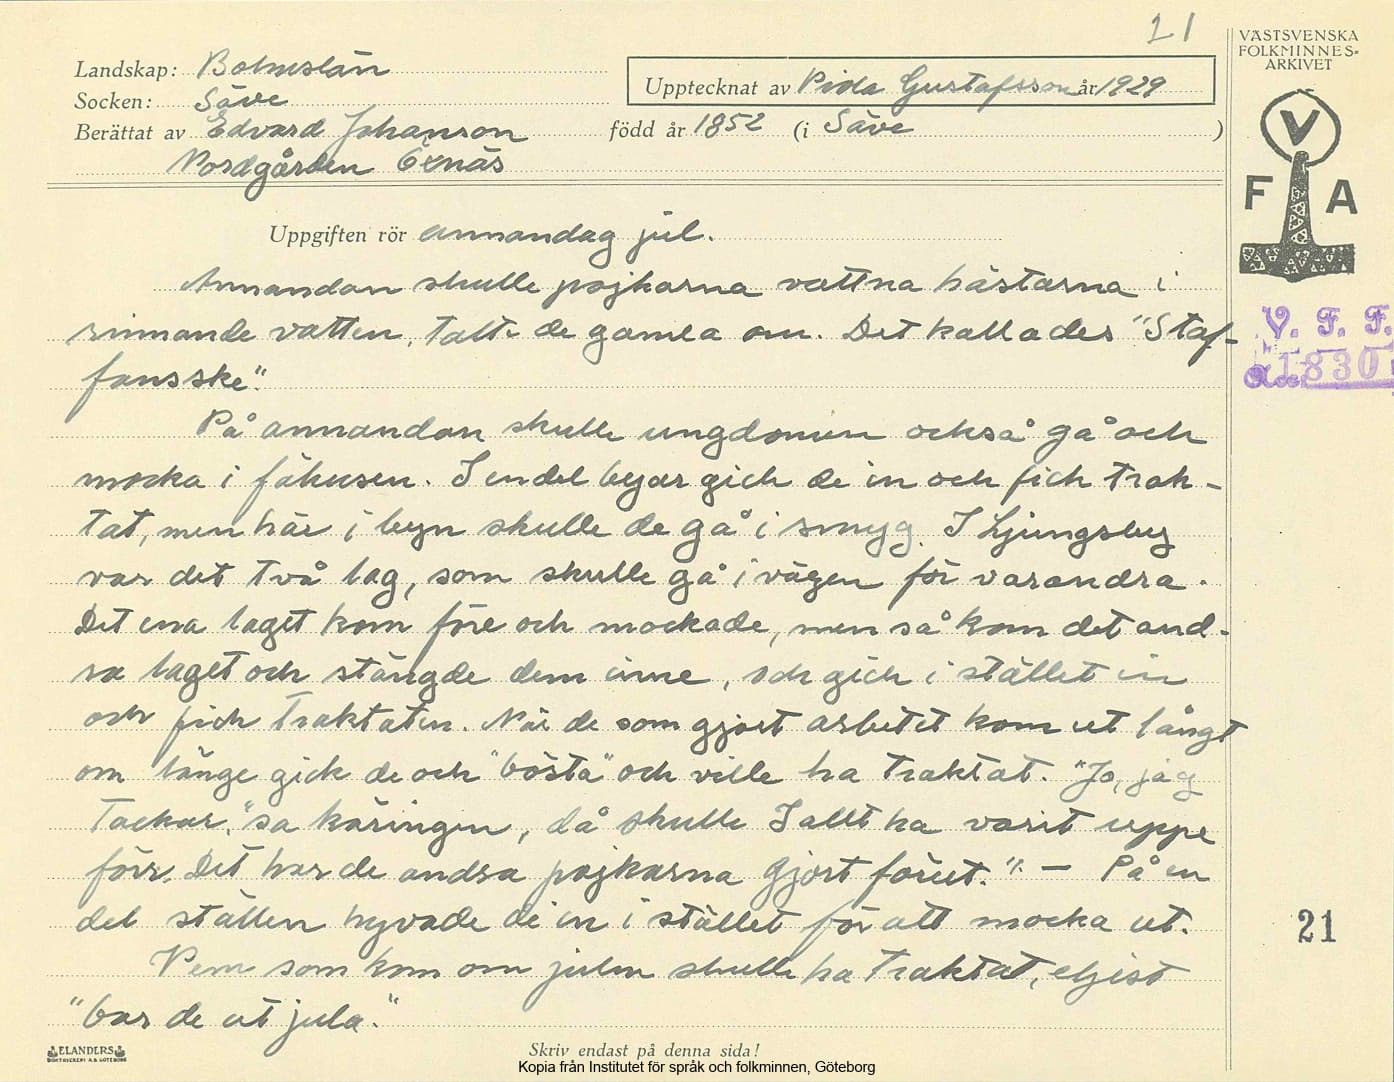 21
VÄSTSVENSKA
FOLKMINNES-
ARKIVET
Landskap: Bohuslän
Socken: Säve
Upptecknat av Vida Gustafsson år 1929
Berättat av Edvard Johanson född år 1852 (i Säve )
Nordgården Exnäs
V
F A
Uppgiften rör annandag jul.
Annandan skulle pojkarna vattna hästarna i
rinnande vatten, talte de gamla om. Det kallades "Staf-
fansske".
V. F. F.
1830
På annandan skulle ungdomen också gå och
mocka i fähusen. I en del byar gick de in och fick trak-
tat, men här i byn skulle de gå i smyg. I Ljungsby
var det två lag, som skulle gå i vägen för varandra.
Det ena laget kom före och mockade, men så kom det and-
ra laget och stängde dem inne, och gick i stället in
och fick traktaten. När de som gjort arbetet kom ut långt
om länge gick de och "bösta" och ville ha traktat. "Jo, jag
tackar," sa käringen, då skulle I allt ha varit uppe
förr. Det har de andra pojkarna gjort förut." — På en
del ställen hyvade de in i stället för att mocka ut.
21
Vem som kom om julen skulle ha traktat, eljest
"bar de ut jula."
ELANDERS
BOKTRYCKERI A.B. GÖTEBORG
Skriv endast på denna sida!
Kopia från Institutet för språk och folkminnen, Göteborg